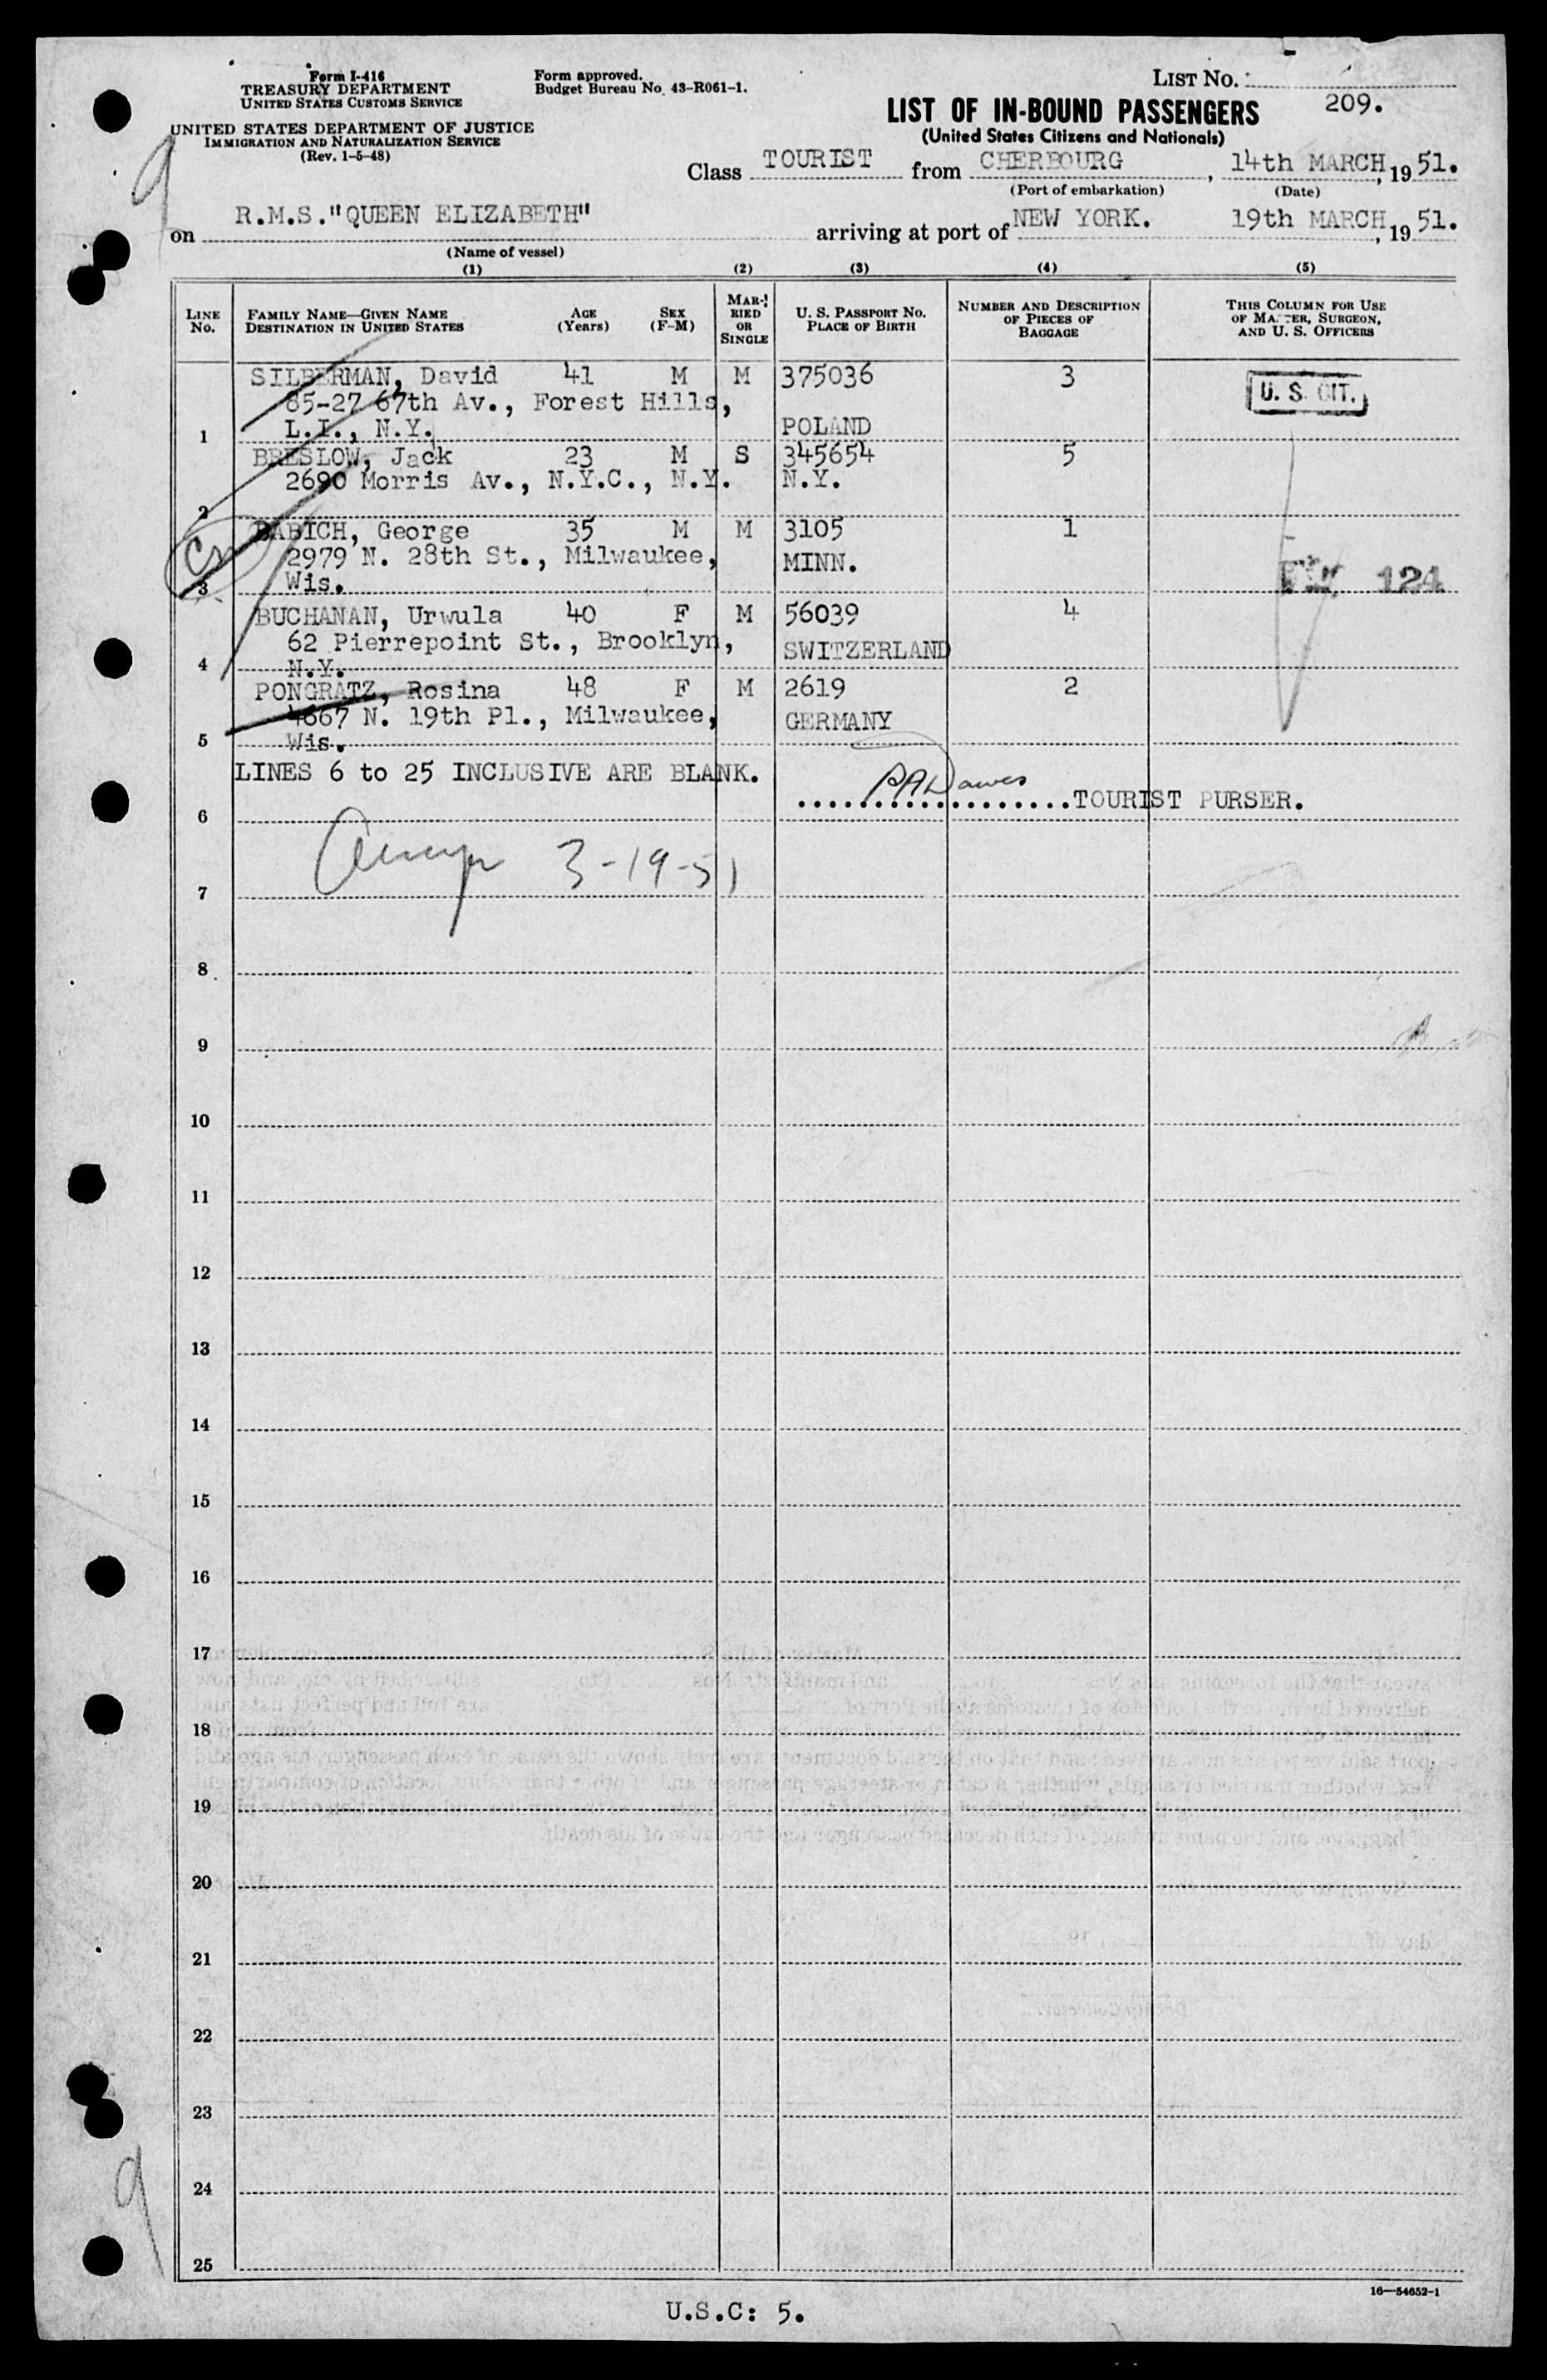 Form I-416
TREASURY DEPARTMENT
UNITED STATES CUSTOMS SERVICE
UNITED STATES DEPARTMENT OF JUSTICE
IMMIGRATION AND NATURALIZATION SERVICE
(Rev. 1-5-48)
Form approved.
Budget Bureau No. 43-R061-1.
LIST NO.
209.
LIST OF IN-BOUND PASSENGERS
(United States Citizens and Nationals)
Class TOURIST from CHERBOURG, 14th MARCH, 1951.
(Port of embarkation) (Date)
on R.M.S."QUEEN ELIZABETH" arriving at port of NEW YORK. 19th MARCH, 1951.
(Name of vessel)
(1) (2) (3) (4) (5)
LINE No. FAMILY NAME—GIVEN NAME DESTINATION IN UNITED STATES AGE (Years) SEX (F-M) MARRIED OR SINGLE U. S. PASSPORT NO. PLACE OF BIRTH NUMBER AND DESCRIPTION OF PIECES OF BAGGAGE THIS COLUMN FOR USE OF MASTER, SURGEON, AND U. S. OFFICERS
SILBERMAN, David 41 M M 375036 3 U. S. CIT.
85-27 67th Av., Forest Hills,
1 L.I., N.Y. POLAND
BRESLOW, Jack 23 M S 345654 5
2690 Morris Av., N.Y.C., N.Y. N.Y.
2
BABICH, George 35 M M 3105 1
2979 N. 28th St., Milwaukee, MINN.
3 Wis. 124
BUCHANAN, Urwula 40 F M 56039 4
62 Pierrepoint St., Brooklyn, SWITZERLAND
4 N.Y.
PONGRATZ, Rosina 48 F M 2619 2
4667 N. 19th Pl., Milwaukee, GERMANY
5 Wis.
LINES 6 to 25 INCLUSIVE ARE BLANK.
6 TOURIST PURSER.
3-19-51
7
8
9
10
11
12
13
14
15
16
17
18
19
20
21
22
23
24
25
16—54652-1
U.S.C: 5.